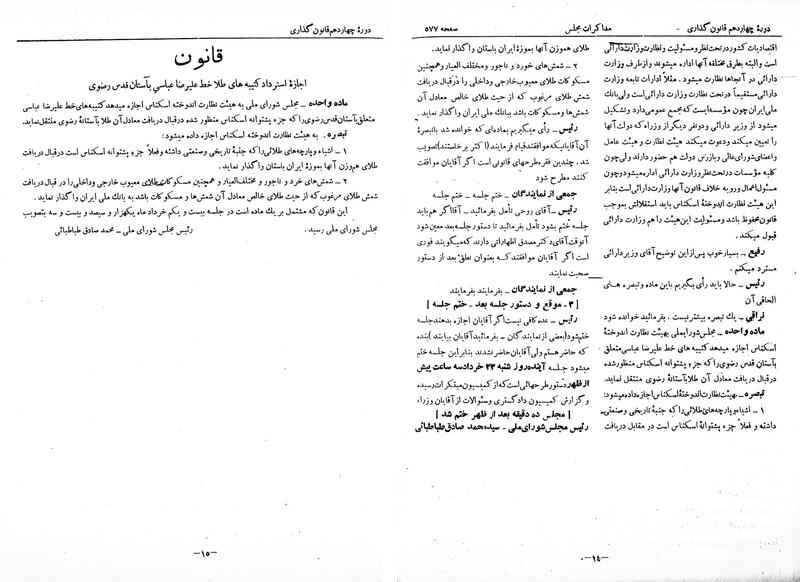 دورهٔ چهاردهم قانون گذاری
مذاکرات مجلس
صفحه ۵۷۷
اقتصادیات کشور در تحت نظر و مسئولیت و نظارت وزارت دارائی
است و البته بطرق مختلفه آنها اداره میشوند و از طرف وزارت
دارائی در آنجاها نظارت میشود. مثلاً ادارات تابعه وزارت
دارائی مستقیماً در تحت نظارت وزارت دارائی است ولی بانک
ملی ایران چون مؤسسه‌ایست که مجمع عمومی دارد و تشکیل
میشود از وزیر دارائی و دو نفر دیگر از وزراء که دولت آنها
را تعیین میکند و دعوت میکند هیئت نظارت و هیئت عامل
و اعضای شورای عالی و بازرس دولت هم حضور دارند ولی چون
کلیه مؤسسات در تحت نظر وزارت دارائی اداره میشود و چون
مسئول اعمال و رویه خلاف قانون آنها وزارت دارائی است بنابر
این هیئت نظارت اندوختهٔ اسکناس باید استقلالش بموجب
قانون محفوظ باشد و مسئولیت این هیئت را هم وزارت دارائی
قبول میکند.
رفیع ـ بسیار خوب پس از این توضیح آقای وزیر دارائی
مسترد میکنم.
رئیس ـ حالا باید رأی بگیریم باین ماده و تبصره های
الحاقی آن
نراقی ـ یك تبصره بیشتر نیست. بفرمائید خوانده شود
ماده واحده ـ مجلس شورای ملی بهیئت نظارت اندوختهٔ
اسکناس اجازه میدهد کتیبه های خط علیرضا عباسی متعلق
بآستان قدس رضوی را که جزء پشتوانه اسکناس منظور شده
در قبال دریافت معادل آن طلا بآستانهٔ رضوی منتقل نماید.
تبصره ـ بهیئت نظارت اندوختهٔ اسکناس اجازه داده میشود:
۱ ـ اشیاء و پارچه‌های طلائی را که جنبهٔ تاریخی و صنعتی
داشته و فعلاً جزء پشتوانهٔ اسکناس است در مقابل دریافت
طلای هموزن آنها بموزهٔ ایران باستان واگذار نماید.
۲ ـ شمش‌های خورد و ناجور و مختلف العیار و همچنین
مسکوکات طلای معیوب خارجی و داخلی را در قبال دریافت
شمش طلای مرغوب که از حیث طلای خالص معادل آن
شمش‌ها و مسکوکات باشد ببانک ملی ایران واگذار نماید.
رئیس ـ رأی میگیریم بماده‌ای که خوانده شد با تبصرهٔ
آن آقایانیکه موافقند قیام فرمایند (اکثر برخاستند) تصویب
شد. چندین فقره طرحهای قانونی است اگر آقایان موافقت
کنند مطرح شود
جمعی از نمایندگان ـ ختم جلسه ـ ختم جلسه
رئیس ـ آقای روحی تأمل بفرمائید ـ آقا اگر هم باید
جلسه ختم بشود تأمل بفرمائید تا دستور جلسه بعد معین شود
آنوقت آقای دکتر مصدق اظهاراتی دارند که میگویند فوری
است اگر آقایان موافقند که بعنوان نطق بعد از دستور
صحبت نمایند
جمعی از نمایندگان ـ بفرمایند بفرمایند
[ ۳ ـ موقع و دستور جلسه بعد ـ ختم جلسه ]
رئیس ـ عده کافی نیست اگر آقایان اجازه بدهند جلسه
ختم شود (بعضی از نمایندگان ـ بفرمائید آقایان بیایند) بنده
که حاضر هستم ولی آقایان حاضر نشدند بنابر این جلسه ختم
میشود جلسه آینده روز شنبه ۲۳ خرداد سه ساعت پیش
از ظهر دستور طرحهائی است که از کمیسیون مبتکرات رسیده
و گزارش کمیسیون دادگستری و سئوالات از آقایان وزراء.
[ مجلس ده دقیقه بعد از ظهر ختم شد ]
رئیس مجلس شورای ملی ـ سید محمد صادق طباطبائی
ـ۱۴ـ
دورهٔ چهاردهم قانون گذاری
قانون
اجازهٔ استرداد کتیبه های طلا خط علیرضا عباسی بآستان قدس رضوی
ماده واحده ـ مجلس شورای ملی به هیئت نظارت اندوخته اسکناس اجازه میدهد کتیبه های خط علیرضا عباسی
متعلق بآستان قدس رضوی را که جزء پشتوانه اسکناس منظور شده در قبال دریافت معادل آن طلا بآستانهٔ رضوی منتقل نماید.
تبصره ـ به هیئت نظارت اندوختهٔ اسکناس اجازه داده میشود:
۱ ـ اشیاء و پارچه‌های طلائی را که جنبهٔ تاریخی و صنعتی داشته و فعلاً جزء پشتوانه اسکناس است در قبال دریافت
طلای هم‌وزن آنها بموزهٔ ایران باستان واگذار نماید.
۲ ـ شمش‌های خرد و ناجور و مختلف العیار و همچنین مسکوکات طلای معیوب خارجی و داخلی را در قبال دریافت
شمش طلای مرغوب که از حیث طلای خالص معادل آن شمش‌ها و مسکوکات باشد به بانک ملی ایران واگذار نماید.
این قانون که مشتمل بر یك ماده است در جلسه بیست و یکم خرداد ماه یکهزار و سیصد و بیست و سه بتصویب
مجلس شورای ملی رسید.
رئیس مجلس شورای ملی ـ محمد صادق طباطبائی
ـ۱۵ـ